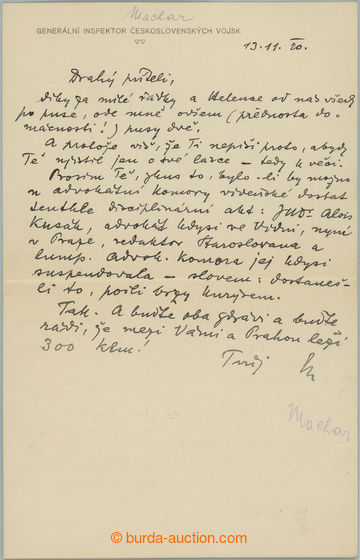 Machar
GENERÁLNÍ INSPEKTOR ČESKOSLOVENSKÝCH VOJSK
13.11.20.
Drahý příteli,
díky za milé řádky a Helence od nás všech
po puse, ode mne ovšem (přednosta do-
mácnosti!) pusy dvě.
A protože víš, že Ti nepíši proto, abych
Tě ujistil jen o své lásce – tedy k věci.
Prosím Tě, zkus to, bylo-li by možno
u advokátní komory vídeňské dostat
senhle disciplinární akt: JUDr. Alois
Kusák, advokát kdysi ve Vídni, nyní
v Praze, redaktor Staroslovana a
lump. Advok. komora jej kdysi
suspendovala – slovem: dostaneš-
li to, pošli brzy kurýrem.
Tak. A buďte oba zdrávi a buďte
rádi, že mezi Vámi a Prahou leží
300 klm!
Tvůj
Machar
© burda-auction.com